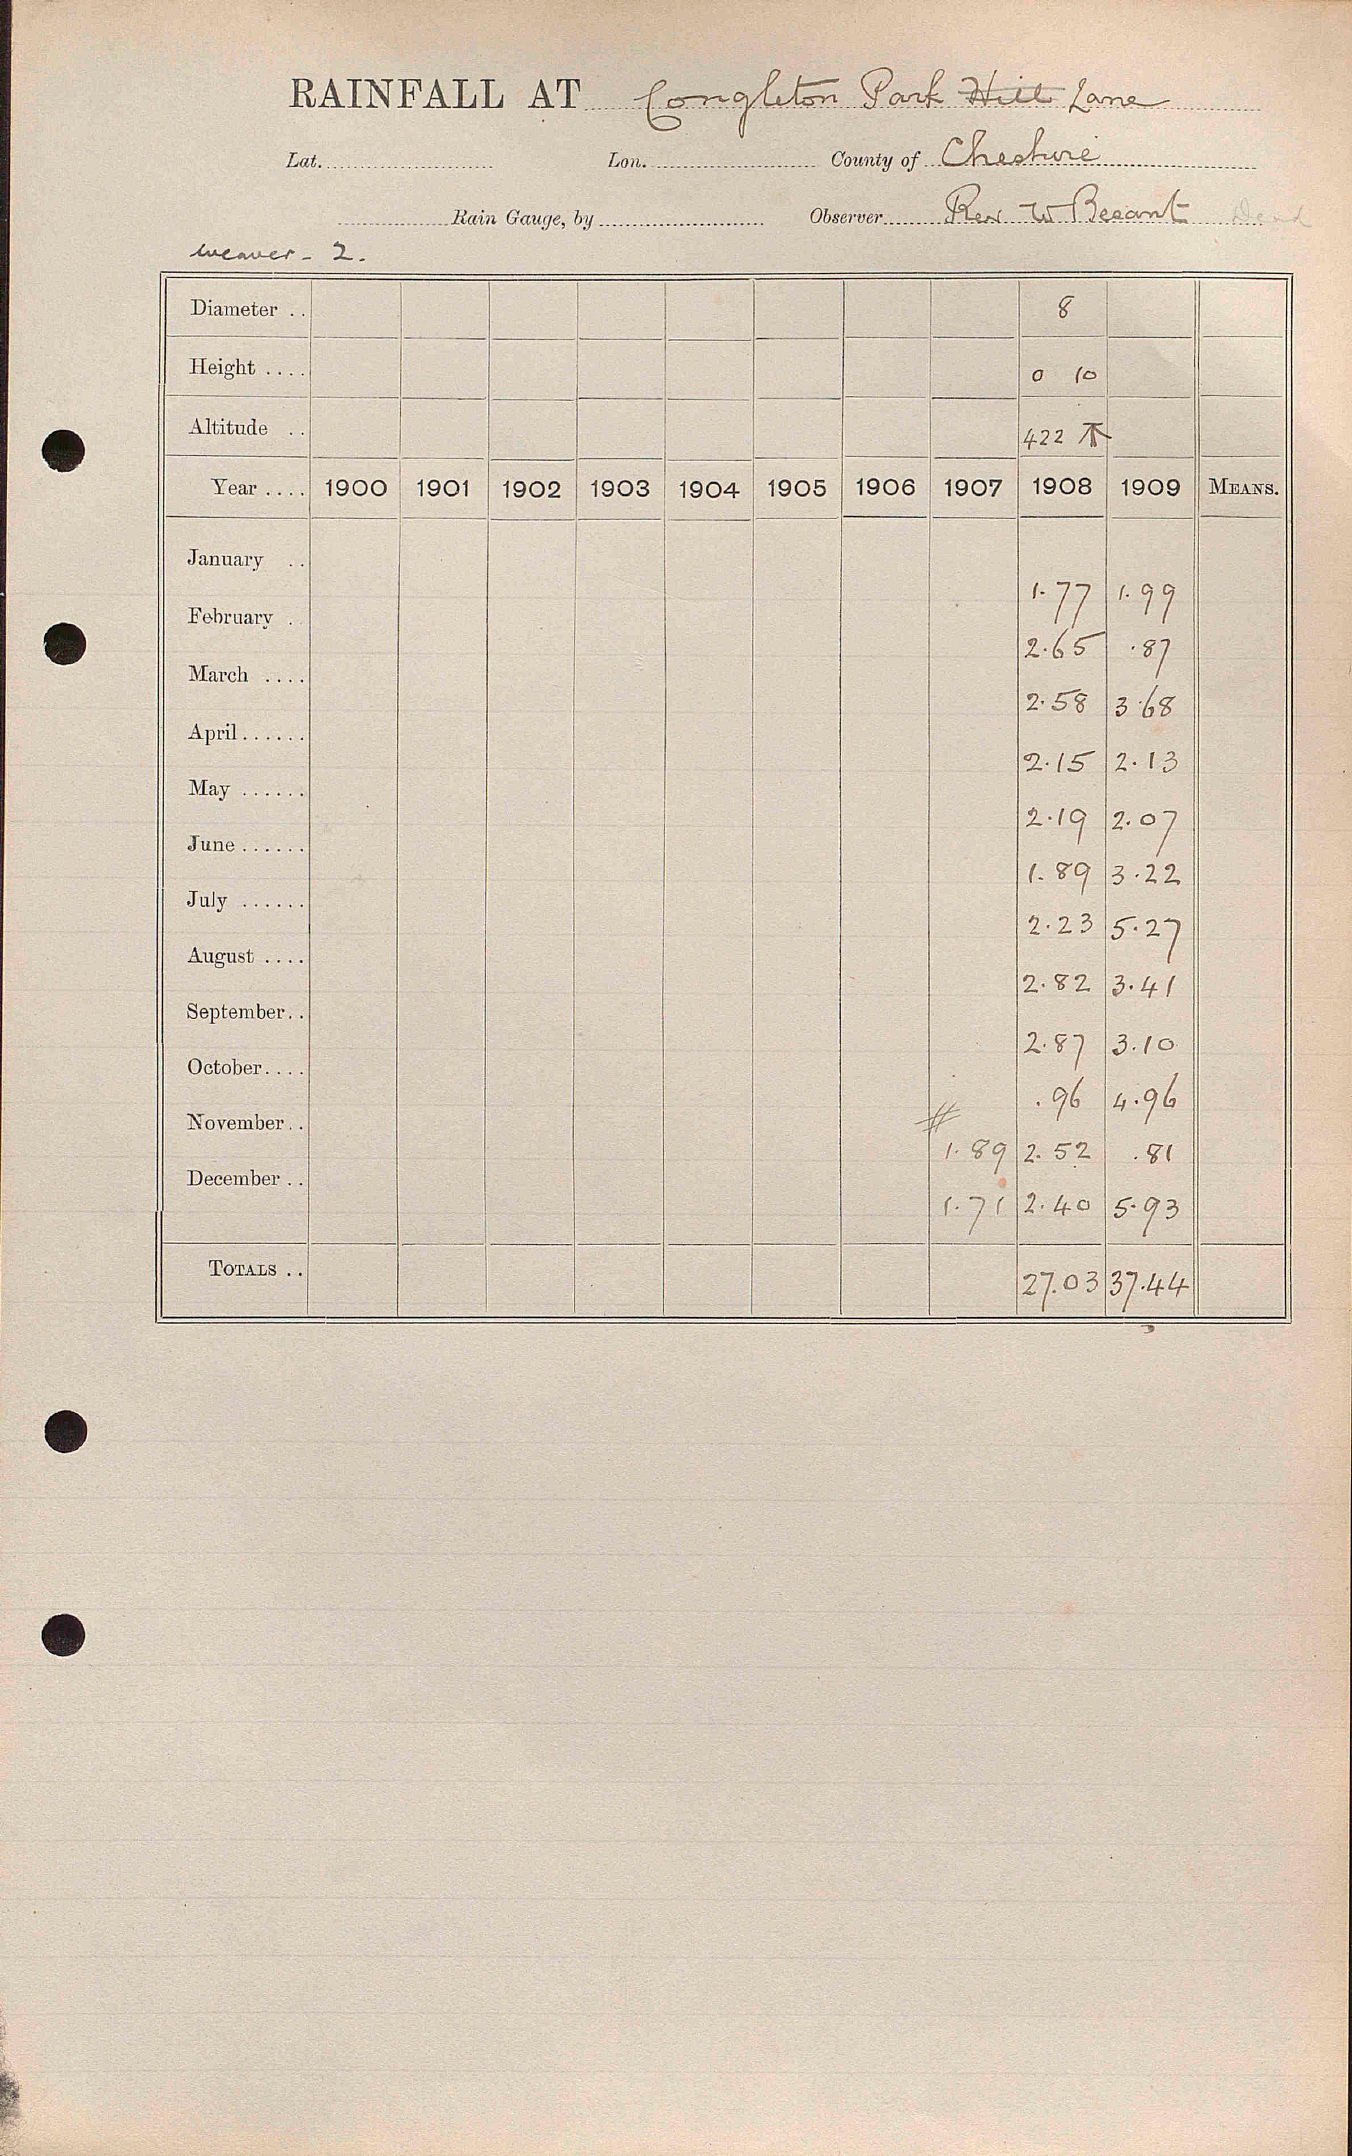 RAINFALL AT Congleton Park Hill Lane
Lat. Lon. County of Cheshire
Rain Gauge, by Observer Rev W Besant Dead
Weaver - 2.
Diameter .. 8
Height .... 0 10
Altitude .. 422
Year .... 1900 1901 1902 1903 1904 1905 1906 1907 1908 1909 MEANS.
January .. 1.77 1.99
February . 2.65 .87
March .... 2.58 3.68
April...... 2.15 2.13
May ...... 2.19 2.07
June ...... 1.89 3.22
July ...... 2.23 5.27
August .... 2.82 3.41
September.. 2.87 3.10
October.... .96 4.96
November.. # 1.89 2.52 .81
December .. 1.71 2.40 5.93
TOTALS .. 27.03 37.44